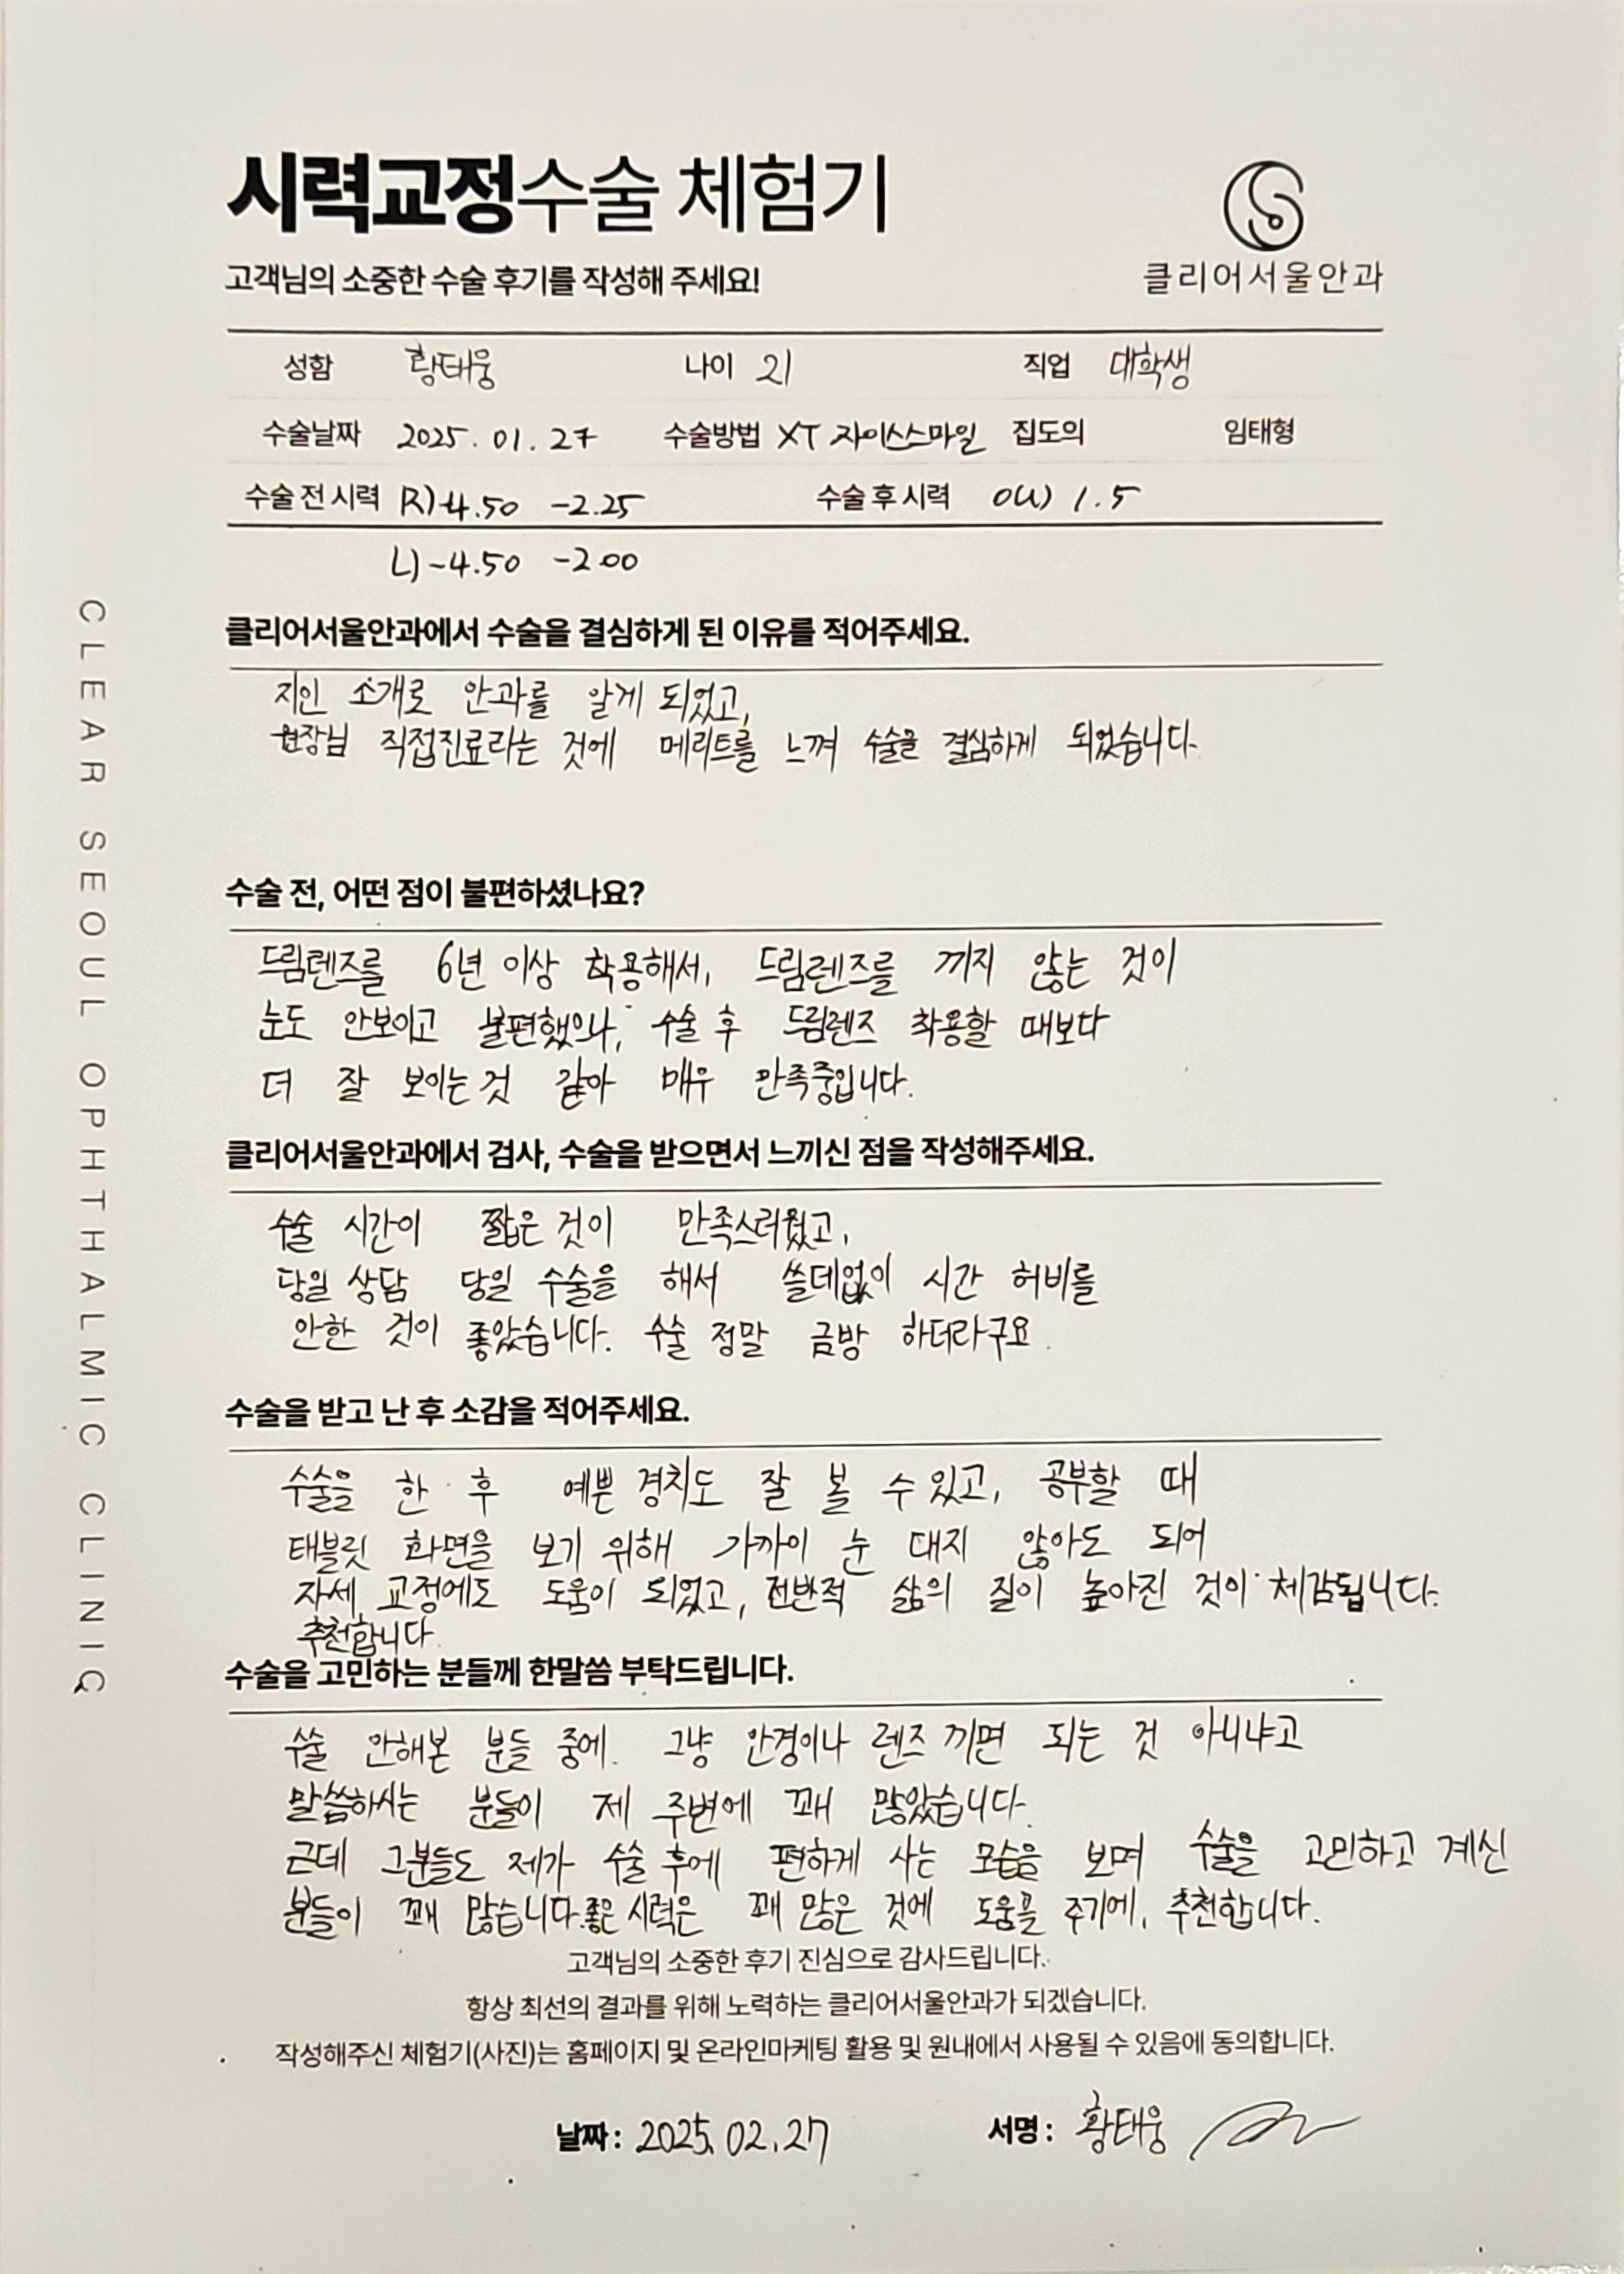 시력교정수술 체험기
고객님의 소중한 수술 후기를 작성해 주세요!
클리어서울안과
성함 황태웅 나이 21 직업 대학생
수술날짜 2025. 01. 27 수술방법 XT 자이스스마일 집도의 임태형
수술 전 시력 R)-4.50 -2.25 수술 후 시력 OU) 1.5
L)-4.50 -2.00
클리어서울안과에서 수술을 결심하게 된 이유를 적어주세요.
지인 소개로 안과를 알게 되었고,
원장님 직접진료라는 것에 메리트를 느껴 수술을 결심하게 되었습니다.
수술 전, 어떤 점이 불편하셨나요?
드림렌즈를 6년 이상 착용해서, 드림렌즈를 끼지 않는 것이
눈도 안보이고 불편했으나, 수술 후 드림렌즈 착용할 때보다
더 잘 보이는 것 같아 매우 만족중입니다.
클리어서울안과에서 검사, 수술을 받으면서 느끼신 점을 작성해주세요.
수술 시간이 짧은 것이 만족스러웠고,
당일 상담 당일 수술을 해서 쓸데없이 시간 허비를
안한 것이 좋았습니다. 수술 정말 금방 하더라구요.
수술을 받고 난 후 소감을 적어주세요.
수술을 한 후 예쁜 경치도 잘 볼 수 있고, 공부할 때
태블릿 화면을 보기 위해 가까이 눈 대지 않아도 되어
자세 교정에도 도움이 되었고, 전반적 삶의 질이 높아진 것이 체감됩니다.
추천합니다.
수술을 고민하는 분들께 한말씀 부탁드립니다.
수술 안해본 분들 중에. 그냥 안경이나 렌즈 끼면 되는 것 아니냐고
말씀하시는 분들이 제 주변에 꽤 많았습니다.
근데 그분들도 제가 수술 후에 편하게 사는 모습을 보며 수술을 고민하고 계신
분들이 꽤 많습니다. 좋은 시력은 꽤 많은 것에 도움을 주기에, 추천합니다.
고객님의 소중한 후기 진심으로 감사드립니다.
항상 최선의 결과를 위해 노력하는 클리어서울안과가 되겠습니다.
작성해주신 체험기(사진)는 홈페이지 및 온라인마케팅 활용 및 원내에서 사용될 수 있음에 동의합니다.
날짜 : 2025. 02. 27 서명 : 황태웅
CLEAR SEOUL OPHTHALMIC CLINIC